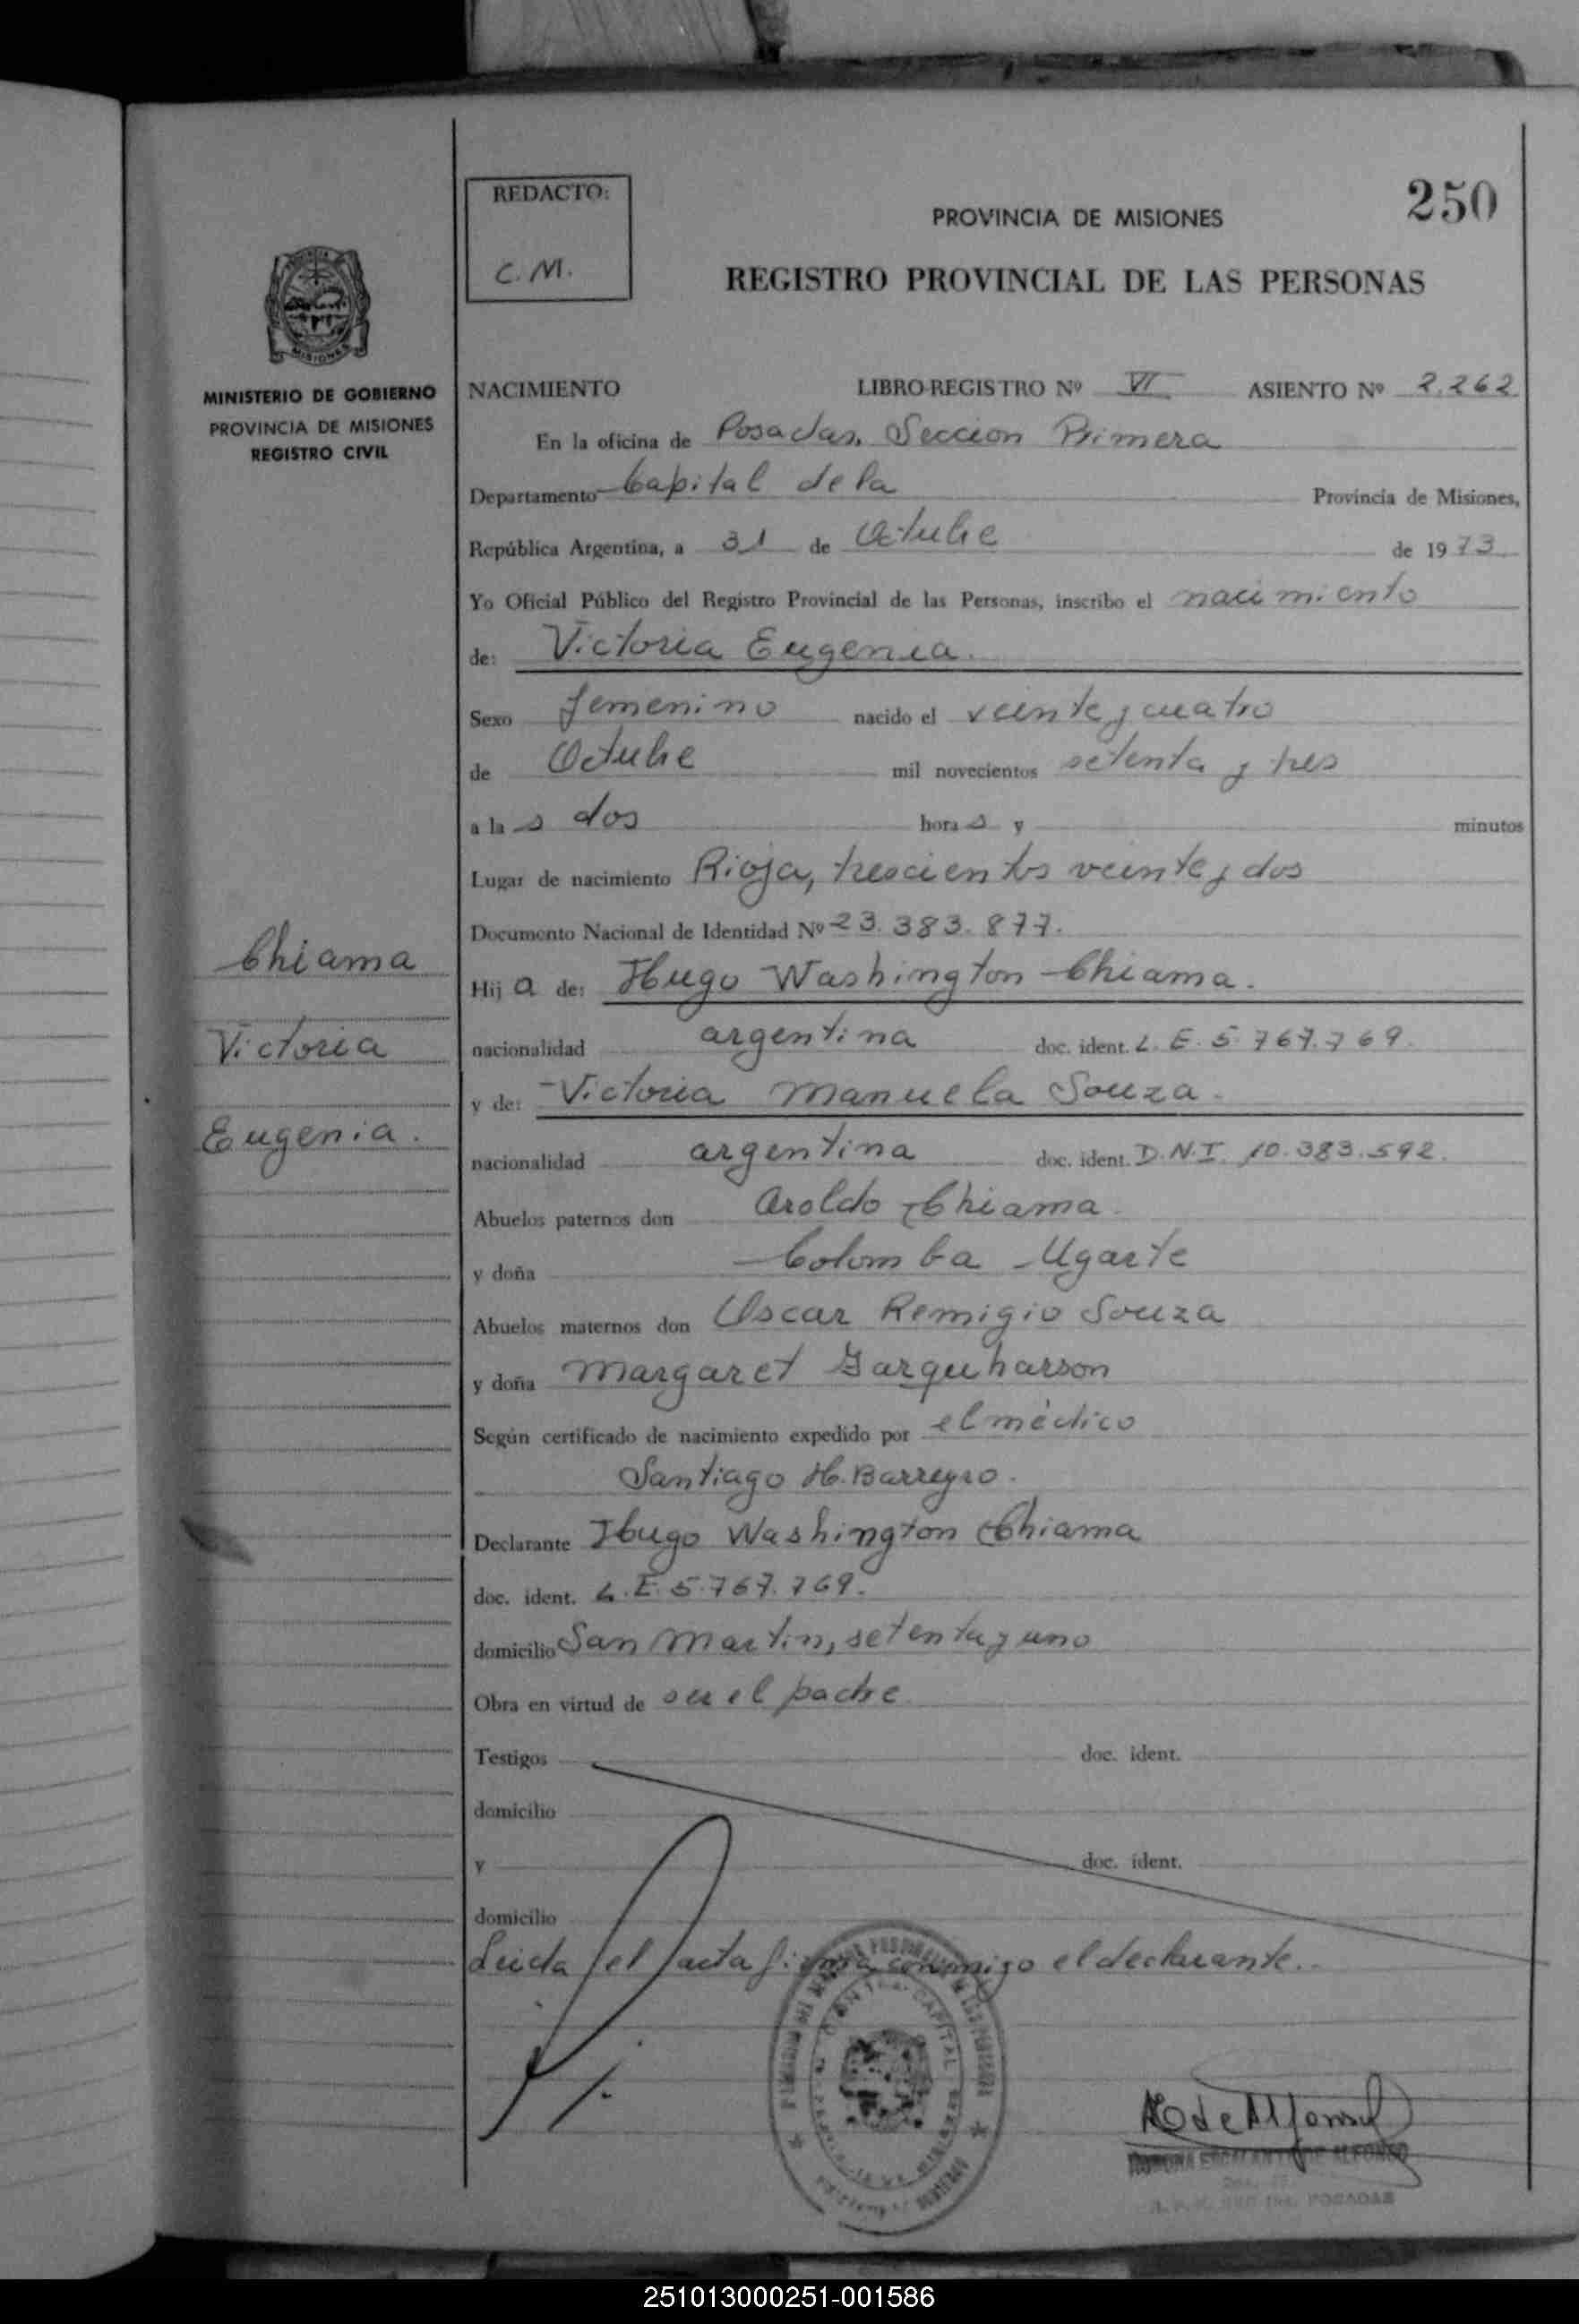 REDACTO:
C. M.
250
PROVINCIA DE MISIONES
REGISTRO PROVINCIAL DE LAS PERSONAS
MISIONES
MINISTERIO DE GOBIERNO
PROVINCIA DE MISIONES
REGISTRO CIVIL
NACIMIENTO LIBRO-REGISTRO Nº VI ASIENTO Nº 2.262
En la oficina de Posadas, Seccion Primera
Departamento Capital de la Provincia de Misiones,
República Argentina, a 31 de Octubre de 1973
Yo Oficial Público del Registro Provincial de las Personas, inscribo el nacimiento
de: Victoria Eugenia.
Sexo femenino nacido el veinte y cuatro
de Octubre mil novecientos setenta y tres
a la s dos hora s y minutos
Lugar de nacimiento Rioja, trescientos veinte y dos
Documento Nacional de Identidad Nº 23.383.877.
Chiama
Victoria
Eugenia.
Hij a de: Hugo Washington Chiama.
nacionalidad argentina doc. ident. L. E. 5.767.769.
y de: Victoria Manuela Souza.
nacionalidad argentina doc. ident. D.N.I. 10.383.592.
Abuelos paternos don Aroldo Chiama.
y doña Colomba Ugarte
Abuelos maternos don Oscar Remigio Souza
y doña Margaret Farquharson
Según certificado de nacimiento expedido por el médico
Santiago H. Barreyro.
Declarante Hugo Washington Chiama
doc. ident. L. E. 5.767.769.
domicilio San Martin, setenta y uno
Obra en virtud de ser el padre.
Testigos doc. ident.
domicilio
y doc. ident.
domicilio
Leida el acta firma conmigo el declarante.
ESCALANTE DE ALFONSO
POSADAS
251013000251-001586